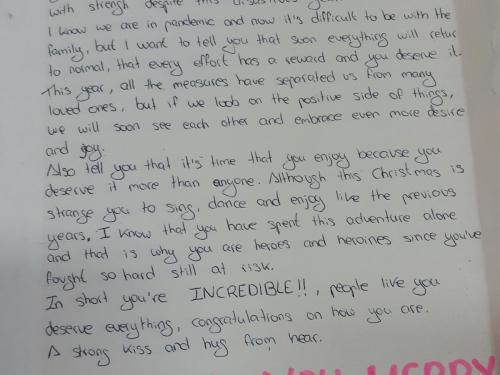 with strengh despite this disastrous year.
I know we are in pandemic and now it's difficult to be with the
family, but I want to tell you that soon everything will retur
to normal, that every effort has a reward and you deserve it.
This year, all the measures have separated us from many
loved ones, but if we loob on the positive side of things,
we will soon see each other and embrace even more desire
and joy.
Also tell you that it's time that you enjoy because you
deserve it more than anyone. Although this Christmas is
strange you to sing, dance and enjoy like the previous
years, I know that you have spent this adventure alone
and that is why you are heroes and heroines since you've
fought so hard still at risk.
In short you're INCREDIBLE!!, people like you
deserve everything, congratulations on how you are.
A strong kiss and hug from hear.
YOU MERRY